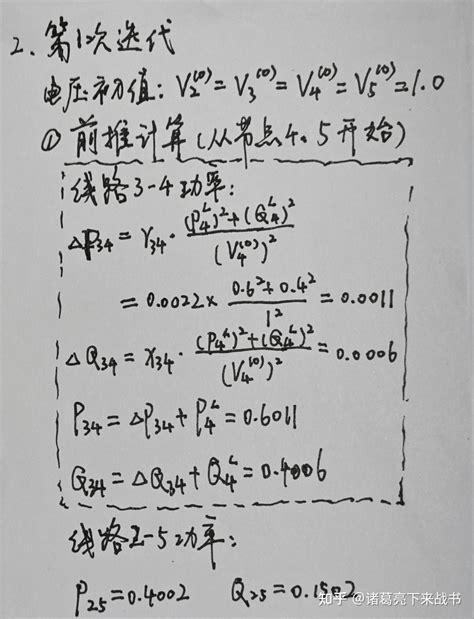 2、第1次迭代
电压初值：V₂⁽⁰⁾=V₃⁽⁰⁾=V₄⁽⁰⁾=V₅⁽⁰⁾=1.0
① 前推计算(从节点4、5开始)
线路3-4功率：
ΔP₃₄ = r₃₄ · ((P₄ᴸ)²+(Q₄ᴸ)²)/(V₄⁽⁰⁾)²
= 0.0022 × (0.6²+0.4²)/1² = 0.0011
ΔQ₃₄ = x₃₄ · ((P₄ᴸ)²+(Q₄ᴸ)²)/(V₄⁽⁰⁾)² = 0.0006
P₃₄ = ΔP₃₄ + P₄ᴸ = 0.6011
Q₃₄ = ΔQ₃₄ + Q₄ᴸ = 0.4006
线路2-5功率：
P₂₅ = 0.4002 Q₂₅ = 0.1502
知乎 @诸葛亮下来战书